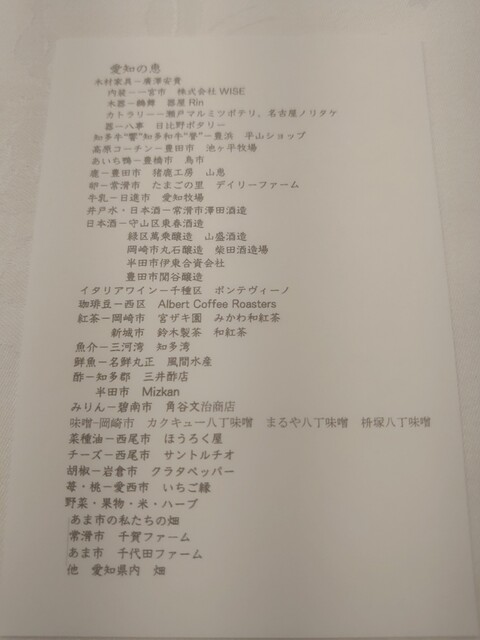 愛知の恵
木村家具－廣澤安貴
内装－一宮市　株式会社 WISE
木器－鶴舞　器屋 Rin
カトラリー－瀬戸マルミツポテリ、名古屋ノリタケ
器－八事　日比野ポタリー
知多牛“響”知多和牛“誉”－豊浜　平山ショップ
高原コーチン－豊田市　池ヶ平牧場
あいち鴨－豊橋市　鳥市
鹿－豊田市　猪鹿工房　山恵
卵－常滑市　たまごの里　デイリーファーム
牛乳－日進市　愛知牧場
井戸水・日本酒－常滑市澤田酒造
日本酒－守山区東春酒造
緑区萬乗醸造　山盛酒造
岡崎市丸石醸造　柴田酒造場
半田市伊東合資会社
豊田市関谷醸造
イタリアワイン－千種区　ポンテヴィーノ
珈琲豆－西区　Albert Coffee Roasters
紅茶－岡崎市　宮ザキ園　みかわ和紅茶
新城市　鈴木製茶　和紅茶
魚介－三河湾　知多湾
鮮魚－名鮮丸正　風間水産
酢－知多郡　三井酢店
半田市　Mizkan
みりん－碧南市　角谷文治商店
味噌-岡崎市　カクキュー八丁味噌　まるや八丁味噌　桝塚八丁味噌
菜種油－西尾市　ほうろく屋
チーズ－西尾市　サントルチオ
胡椒－岩倉市　クラタペッパー
苺・桃－愛西市　いちご縁
野菜・果物・米・ハーブ
あま市の私たちの畑
常滑市　千賀ファーム
あま市　千代田ファーム
他　愛知県内　畑